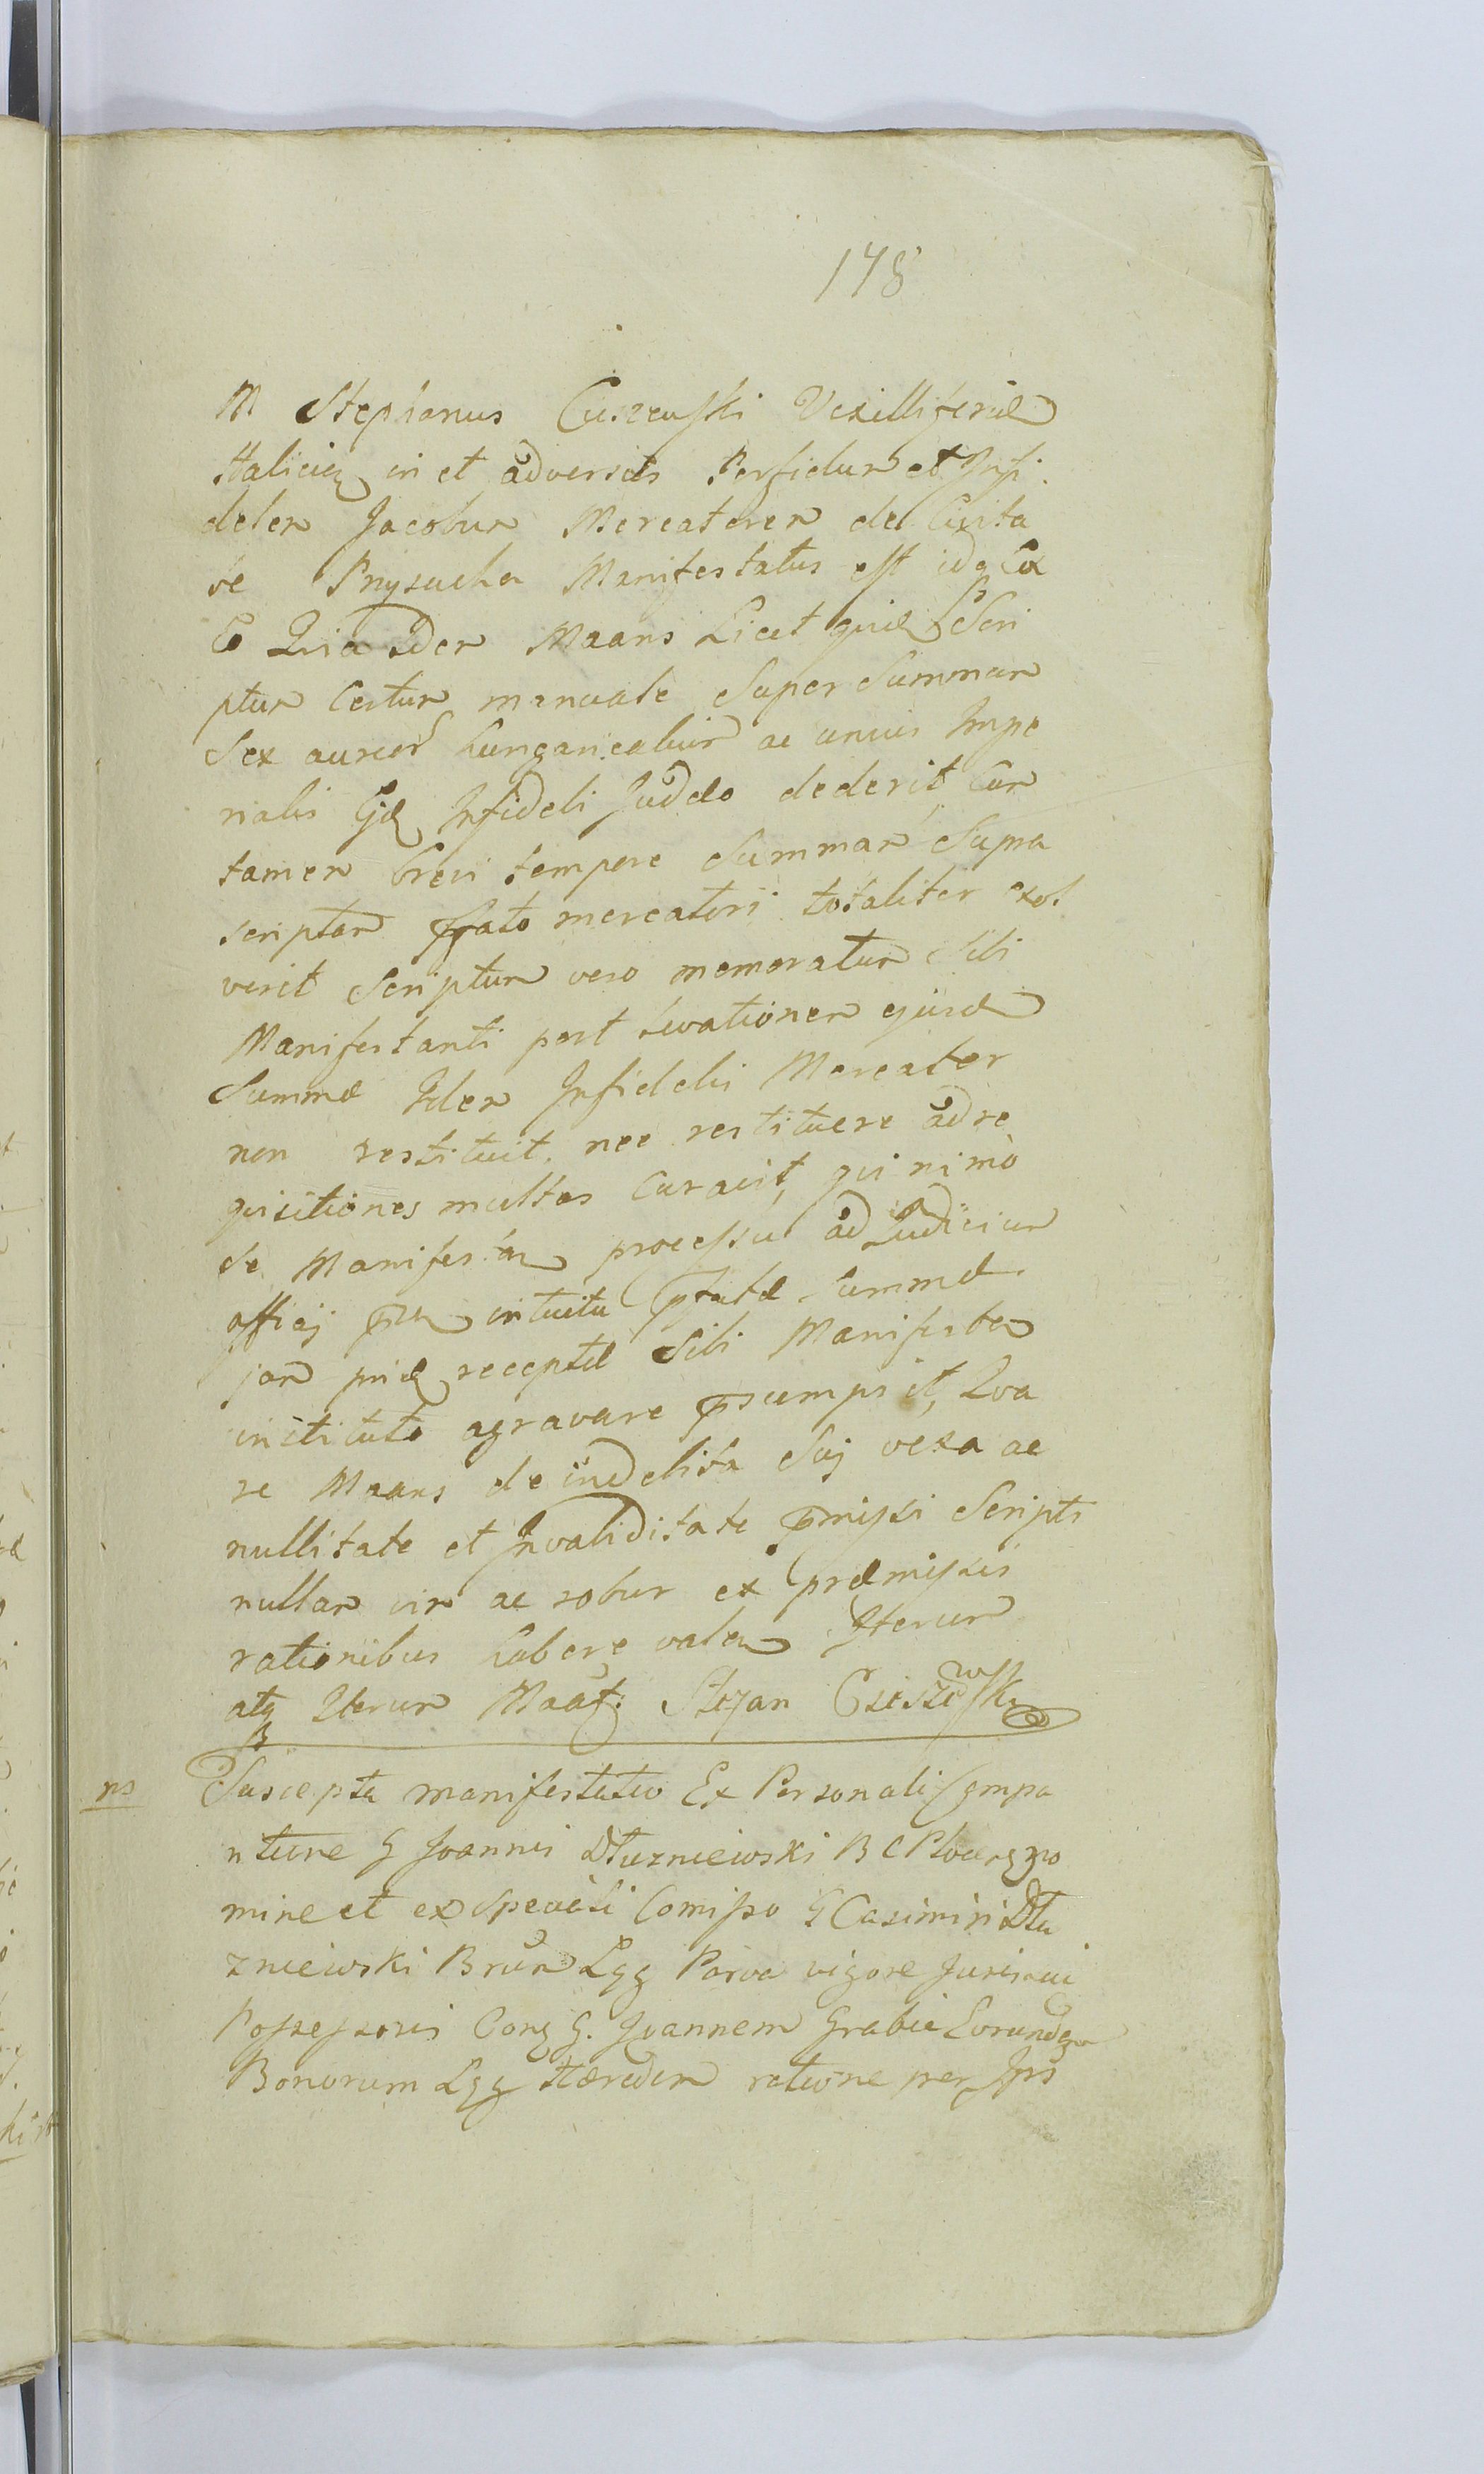 178
M Stephanus Cieszewski Vexilliferidæ
Halicien in et adversus Perfidum et Infi
delem Jacobum Mercatorem de Civita
te Przysucha Manifestatus est idq Ex
Eo Quia Idem Maans Licet quid Scri
ptum Certum manuale super Summam
Sex aureor hungaricalium ac unius Impe
rialis Infideli Judæo dederit, Cum
tamen brevi tempore Summam Supra
scriptam pfato mercatori totaliter exol
verit Scriptum vero memoratum Sibi
Manifestanti post levationem ejusd
Summæ Idem Infidelis Mercator
non restituit, nec restituere ad re
quisitiones multas Curavit, qui nimò
se Manifestan processu ad Judicium
officij intuitu pfatæ Summæ
jam receptæ Sibi Manifestan
instituto agravare psumpsit, Qua
re Maans de indebita Sui vexa ac
nullitate et Invaliditate pmissi Scripti
nullam vim ac robur ex præmissis
rationibus habere valen Iterum
atq Iterum Maaf: Stefan Cieszewski
ns Suscepta manifestatio Ex Personali Compa
ritione G Joannis Dłuzniewski B C Plocen no
mine et ex speciali Comisso G Casimiri Dłu
zniewski Bonor Lgg Parva vigore Juris sui
Possessoris Cong G. Joannem Grabie Eorundem
Bonorum Lgg Hæredem ratione per Ips